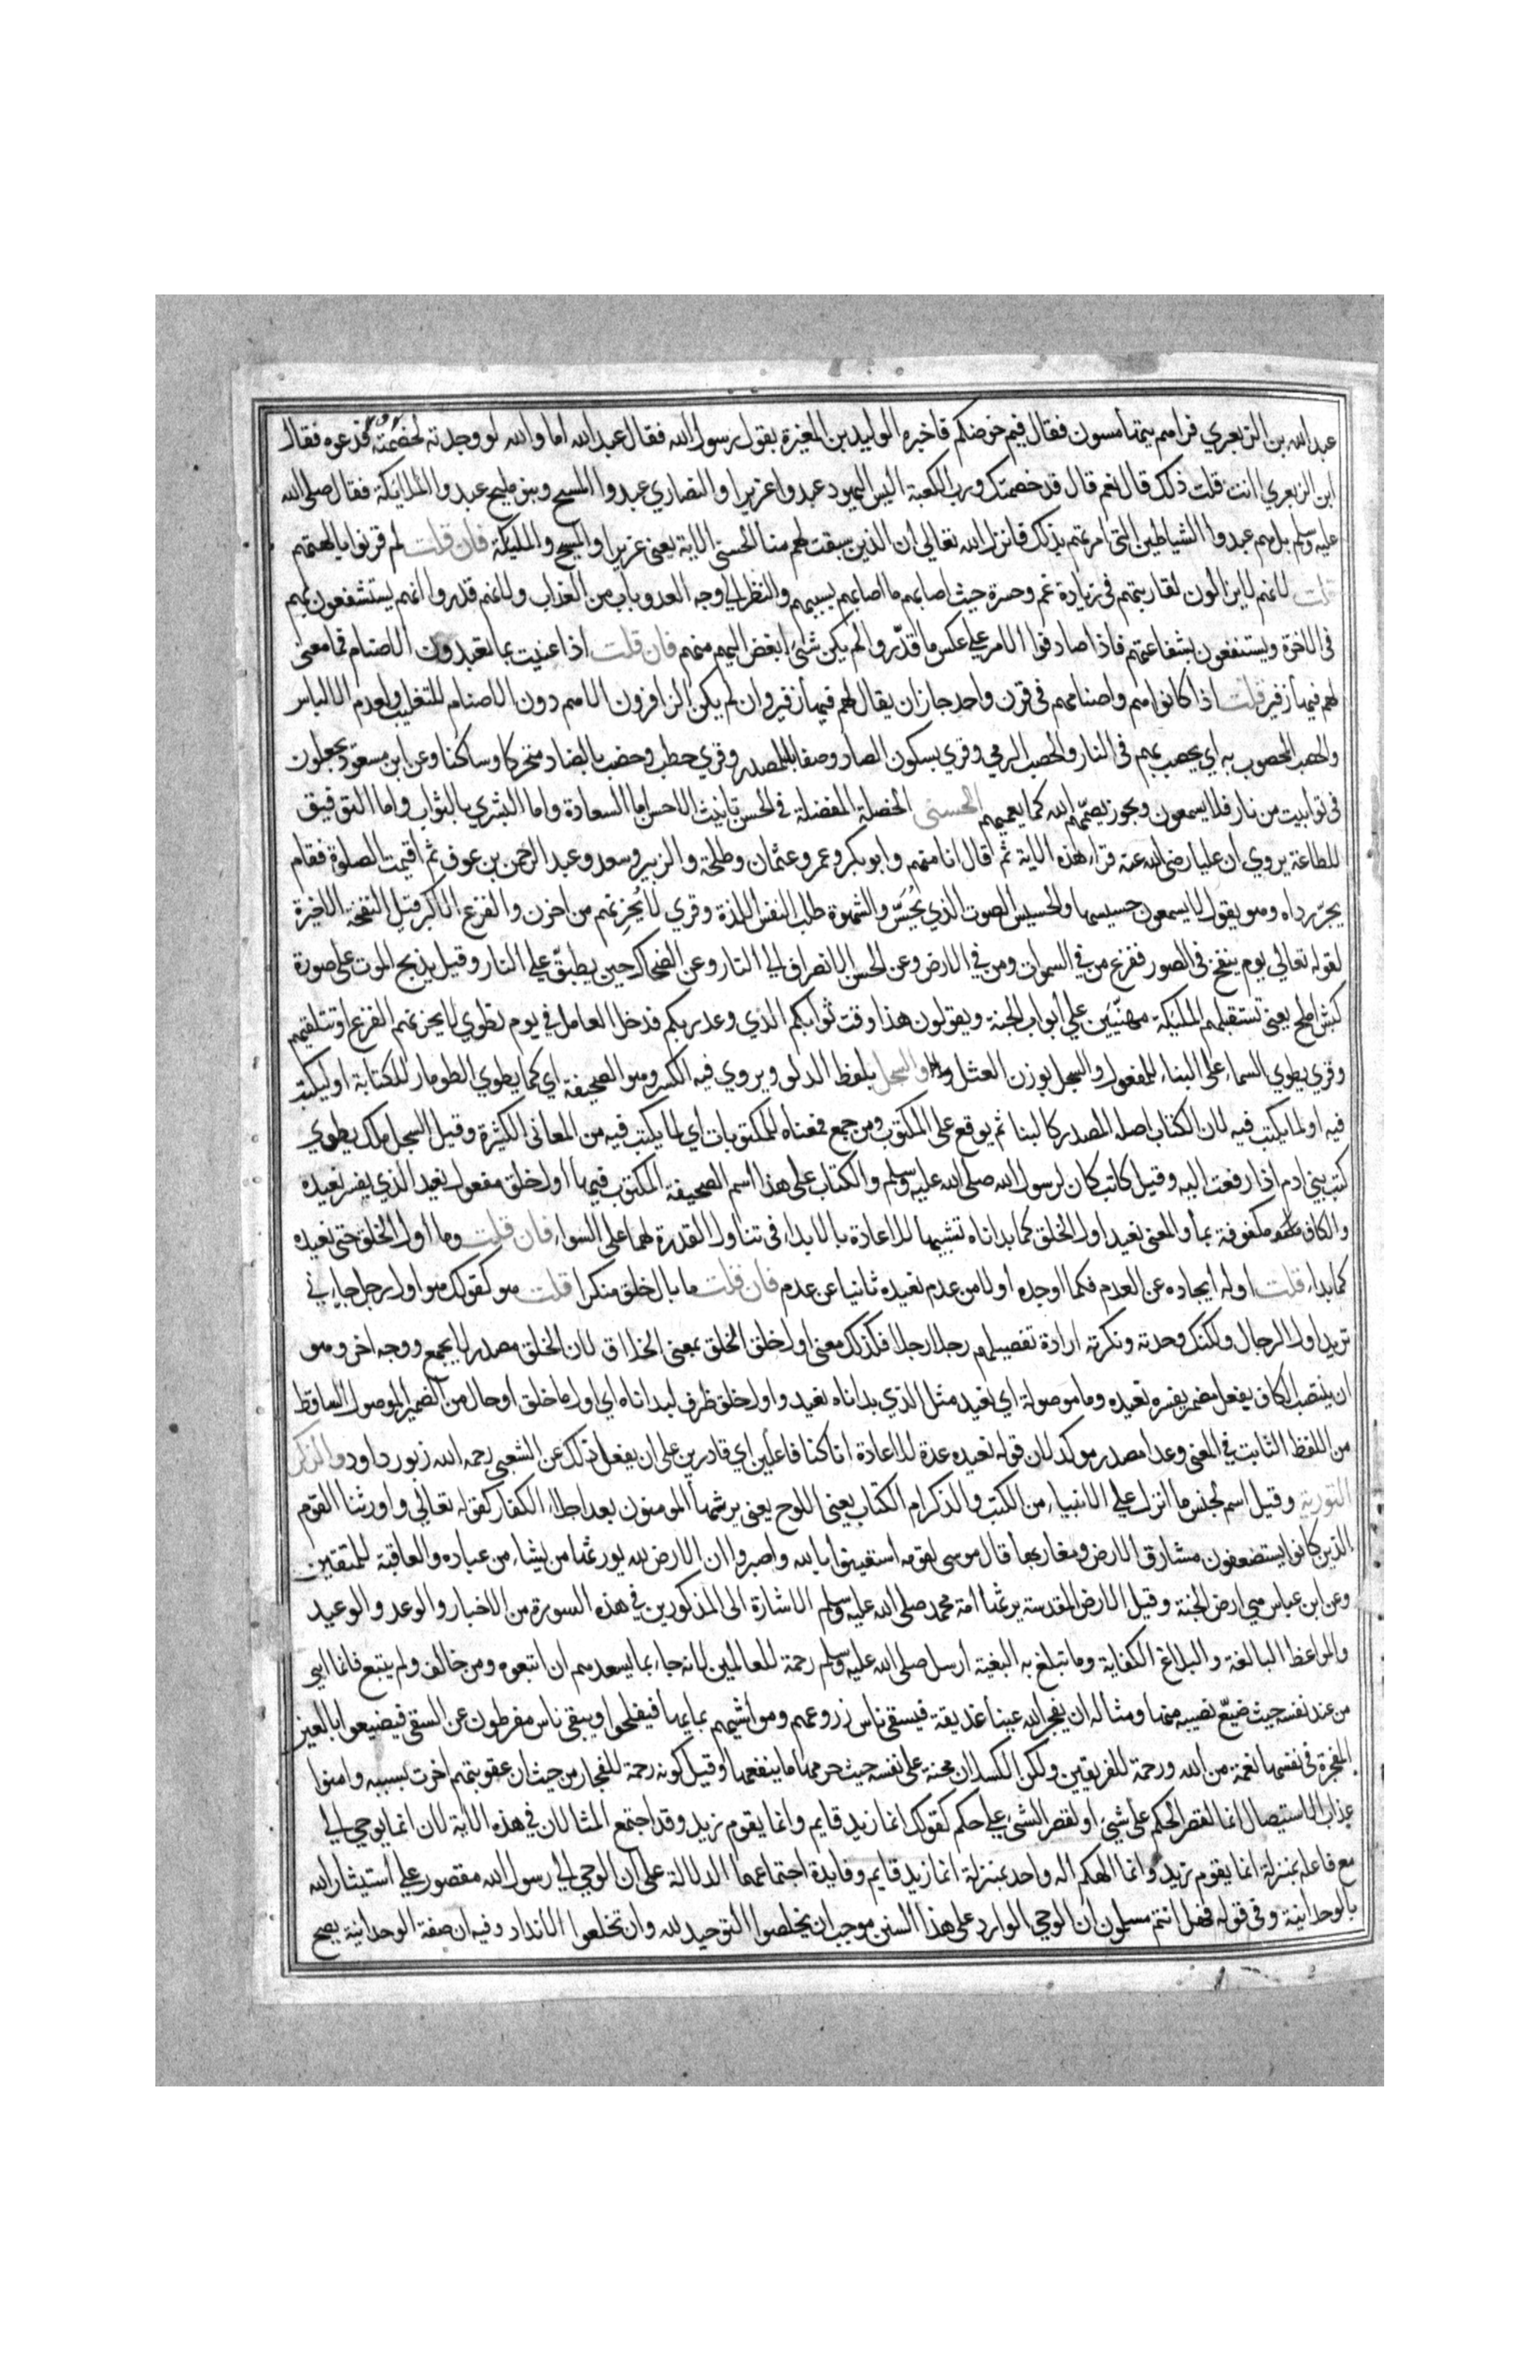 عبد الله بن الزبعري فراهم يتهامسون فقال فيم خوضكم فاخبره الوليد بن المغيرة بقول رسول الله فقال عبد الله اما والله لو وجدته لخصمته فدعوه فقال
ابن الزبعري اانت قلت ذلك قال نعم قال قد خصمتك ورب الكعبة اليس اليهود عبدوا عزيرا والنصاري عبدوا المسيح وبنو مليح عبدوا الملائكة فقال صلى الله
عليه وسلم بل هم عبدوا الشياطين التي امرتهم بذلك فانزل الله تعالي ان الذين سبقت لهم منا الحسنى الاية يعني عزيرا والمسيح والمليكة فان قلت لم قرنوا بالهتهم
قلت لانهم لايزالون لمقارنتهم في زيادة غم وحسرة حيث اصابهم ما اصابهم بسببهم والنظر الي وجه العدو باب من العذاب ولانهم قدروا انهم يستشفعون بهم
في الاخرة ويستنفعون بشفاعتهم فاذا صادفوا الامر علي عكس ما قدّروا لم يكن شئ ابغض اليهم منهم فان قلت اذا عنيت بما تعبدون الاصنام فما معنى
لهم فيها زفير قلت اذا كانوا هم واصنامهم في قرن واحد جاز ان يقال لهم فيها زفير وان لم يكن الزافرون الا هم دون الاصنام للتغليب ولعدم الالباس
والحصب المحصوب به اي يحصب بهم في النار والحصب الرمي وقري بسكون الصاد وصفا بالمصدر وقري حطب وحضب بالضاد متحركا وساكنا وعن ابن مسعود يجعلون
في توابيت من نار فلا يسمعون ويجوز يصمّهم الله كما يعميهم الحسنى الخصلة المفضلة في الحسن تانيث الاحسن اما السعادة واما البشري بالثواب واما التوفيق
للطاعة يروي ان عليا رضى الله عنه قرا هذه الاية ثم قال انا منهم وابو بكر وعمر وعثمان وطلحة والزبير وسعد وعبد الرحمن بن عوف ثم اقيمت الصلوة فقام
يجرّ رداه وهو يقول لا يسمعون حسيسها والحسيس الصوت الذي يُحَسّ والشهوة طلب النفس اللذة وقري لا يُحزِنهم من احزن والفزع الاكبر قيل النفخة الاخيرة
لقوله تعالي يوم ينفخ في الصور ففزع من في السموات ومن في الارض وعن الحسن الانصراف الي النار وعن الضحاك حين يطبقّ علي النار وقيل يذبح الموت على صورة
كبش املح يعني تستقبلهم المليكة مهنّيين علي ابواب الجنة ويقولون هذا وقت ثوابكم الذي وعد ربكم قد حل العامل في يوم نطوي لا يحزنهم الفزع او تتلقيهم
وقري يطوي السماء على البناء للمفعول والسجل بوزن العتل والسجل بلفظ الدلو ويروي فيه الكسر وهو الصحيفة اي كما يطوي الطومار للكتابة او ليكتب
فيه او لما يكتب فيه لان الكتاب اصله المصدر كالبنا ثم يوقع على المكتوب ومن جمع فمعناه للمكتوبات أي لما يكتب فيه من المعاني الكثيرة وقيل السجل ملك يطوي
كتب بني ادم اذا رفعت اليه وقيل كاتب كان لرسول الله صلى الله عليه وسلم والكتاب على هذا اسم الصحيفة المكتوب فيها اول خلق مفعول نعيد الذي يفسره نعيده
والكاف مكفوفة بما والمعنى نعيد اول الخلق كما بداناه تشبيها للاعادة بالابداء في تناول القدرة لهما على السواء فان قلت وما اول الخلق حتى نعيده
كما بداه قلت اوله ايجاده عن العدم فكما اوجده أولا من عدم نعيده ثانيا عن عدم فان قلت ما بال خلق منكرا قلت هو كقولك هو اول رجل جاءني
تريد اول الرجال ولكنك وحدته ونكرته ارادة تفصيلهم رجلا رجلا فكذلك معنى اول خلق الخلق بمعنى الخلائق لان الخلق مصدر لا يجمع ووجه اخر وهو
ان ينتصب الكاف بفعل مضمر يفسره نعيده وما موصولة اي نعيد مثل الذي بداناه نعيد واول خلق ظرف لبداناه اي اول ما خلق أو حال من الضمير الموصول الساقط
من اللفظ الثابت في المعنى وعدا مصدر موكد لان قوله نعيده عدة للاعادة انا كنا فاعلين اي قادرين على ان يفعل ذلك عن الشعبي رحمه الله زبور داود والذكر
التورية وقيل اسم لجنس ما انزل علي الانبياء من الكتب والذكر ام الكتاب يعني اللوح يعني يرثها المومنون بعد اجلاء الكفار كقوله تعالي واورثنا القوم
الذين كانوا يستضعفون مشارق الارض ومغاربها قال موسى لقومه استعينوا بالله واصبروا ان الارض لله يورثها من يشاء من عباده والعاقبة للمتقين
وعن ابن عباس هي ارض الجنة وقيل الارض المقدسة يرثها أمة محمد صلى الله عليه وسلم الاشارة الى المذكورين في هذه السورة من الاخبار والوعد والوعيد
والمواعظ البالغة والبلاغ الكفاية وما تبلغ به البغية أرسل صلى الله عليه وسلم رحمة للعالمين لانه جاء بما يسعدهم ان اتبعوه ومن خالف ولم يتبع فانما اتي
من عند نفسه حيث ضيّع نصيبه منها ومثاله ان يفجر الله عينا غديقة فيسقي ناس زروعهم ومواشيهم بمايها فيفلحوا ويبقى ناس مفرطون عن السقي فيضيعوا بالعين
المفجرة في نفسها نعمة من الله ورحمة للفريقين ولكن الكسلان محنة على نفسه حيث حرمها ما ينفعها وقيل كونه رحمة للفجار من حيث ان عقوبتهم اخرت بسببه وامنوا
عذاب الاستيصال انما لقصر الحكم على شيئ او لقصر الشئ علي حكم كقولك انما زيد قايم وانما يقوم زيد وقد اجتمع المثالان في هذه الاية لان انما يوحي الي
مع فاعله بمنزلة انما يقوم زيد وانما الهكم اله واحد بمنزلة انما زيد قايم وفايدة اجتماعهما الدلالة على ان الوحي الي رسول الله مقصور علي استيثار الله
بالوحدانية وفي قوله فهل انتم مسلمون ان الوحي الوارد على هذا السنن موجب ان يخلصوا التوحيد لله وان تخلعوا الانداد وفيه ان صفة الوحدانية يصح